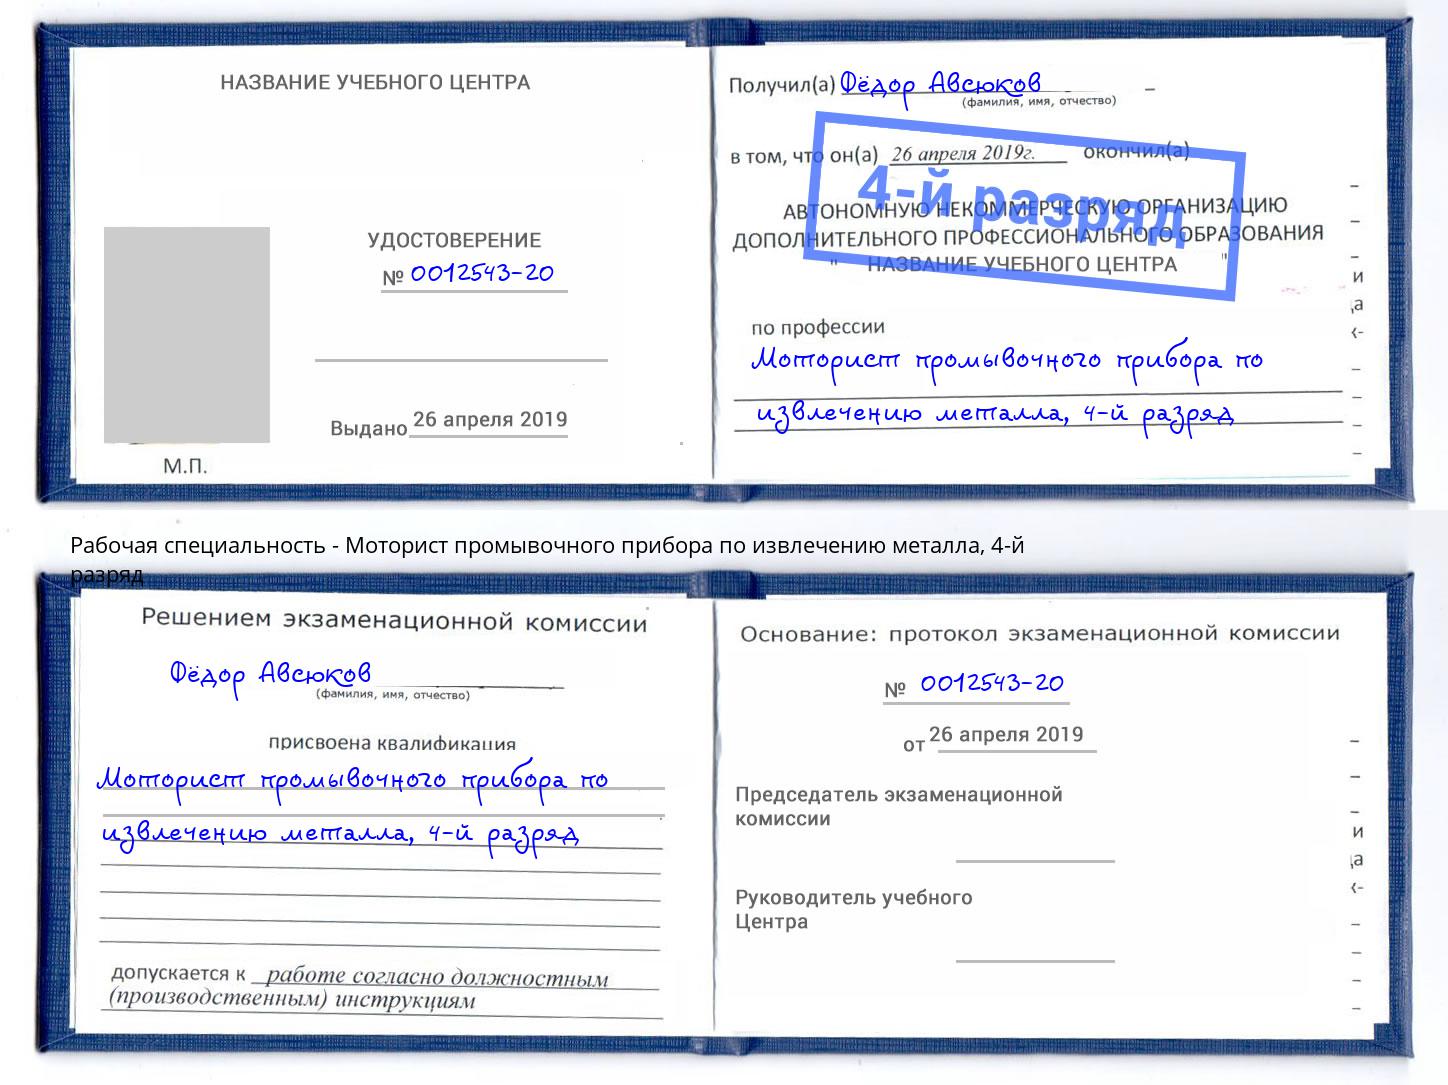 НАЗВАНИЕ УЧЕБНОГО ЦЕНТРА
УДОСТОВЕРЕНИЕ
№ 0012543-20
Выдано 26 апреля 2019
М.П.
Получил(а) Фёдор Авсюков
(фамилия, имя, отчество)
в том, что он(а) 26 апреля 2019г. окончил(а)
4-й разряд
АВТОНОМНУЮ НЕКОММЕРЧЕСКУЮ ОРГАНИЗАЦИЮ
ДОПОЛНИТЕЛЬНОГО ПРОФЕССИОНАЛЬНОГО ОБРАЗОВАНИЯ
" НАЗВАНИЕ УЧЕБНОГО ЦЕНТРА "
по профессии
Моторист промывочного прибора по
извлечению металла, 4-й разряд
Рабочая специальность - Моторист промывочного прибора по извлечению металла, 4-й
разряд
Решением экзаменационной комиссии
Фёдор Авсюков
(фамилия, имя, отчество)
присвоена квалификация
Моторист промывочного прибора по
извлечению металла, 4-й разряд
допускается к работе согласно должностным
(производственным) инструкциям
Основание: протокол экзаменационной комиссии
№ 0012543-20
от 26 апреля 2019
Председатель экзаменационной
комиссии
Руководитель учебного
Центра